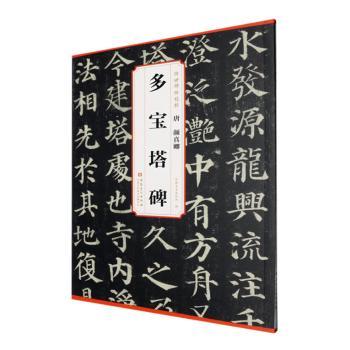 多宝塔碑
唐 顏真卿
水發源龍興流注千
澄泛灧中有方舟
久之
今建塔處也寺内
法相先於其地復見